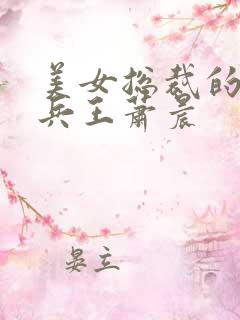 美女总裁的
兵王萧晨
晏立